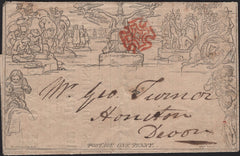 Mr. Geo. Turner
Honiton
Devon
POSTAGE ONE PENNY.